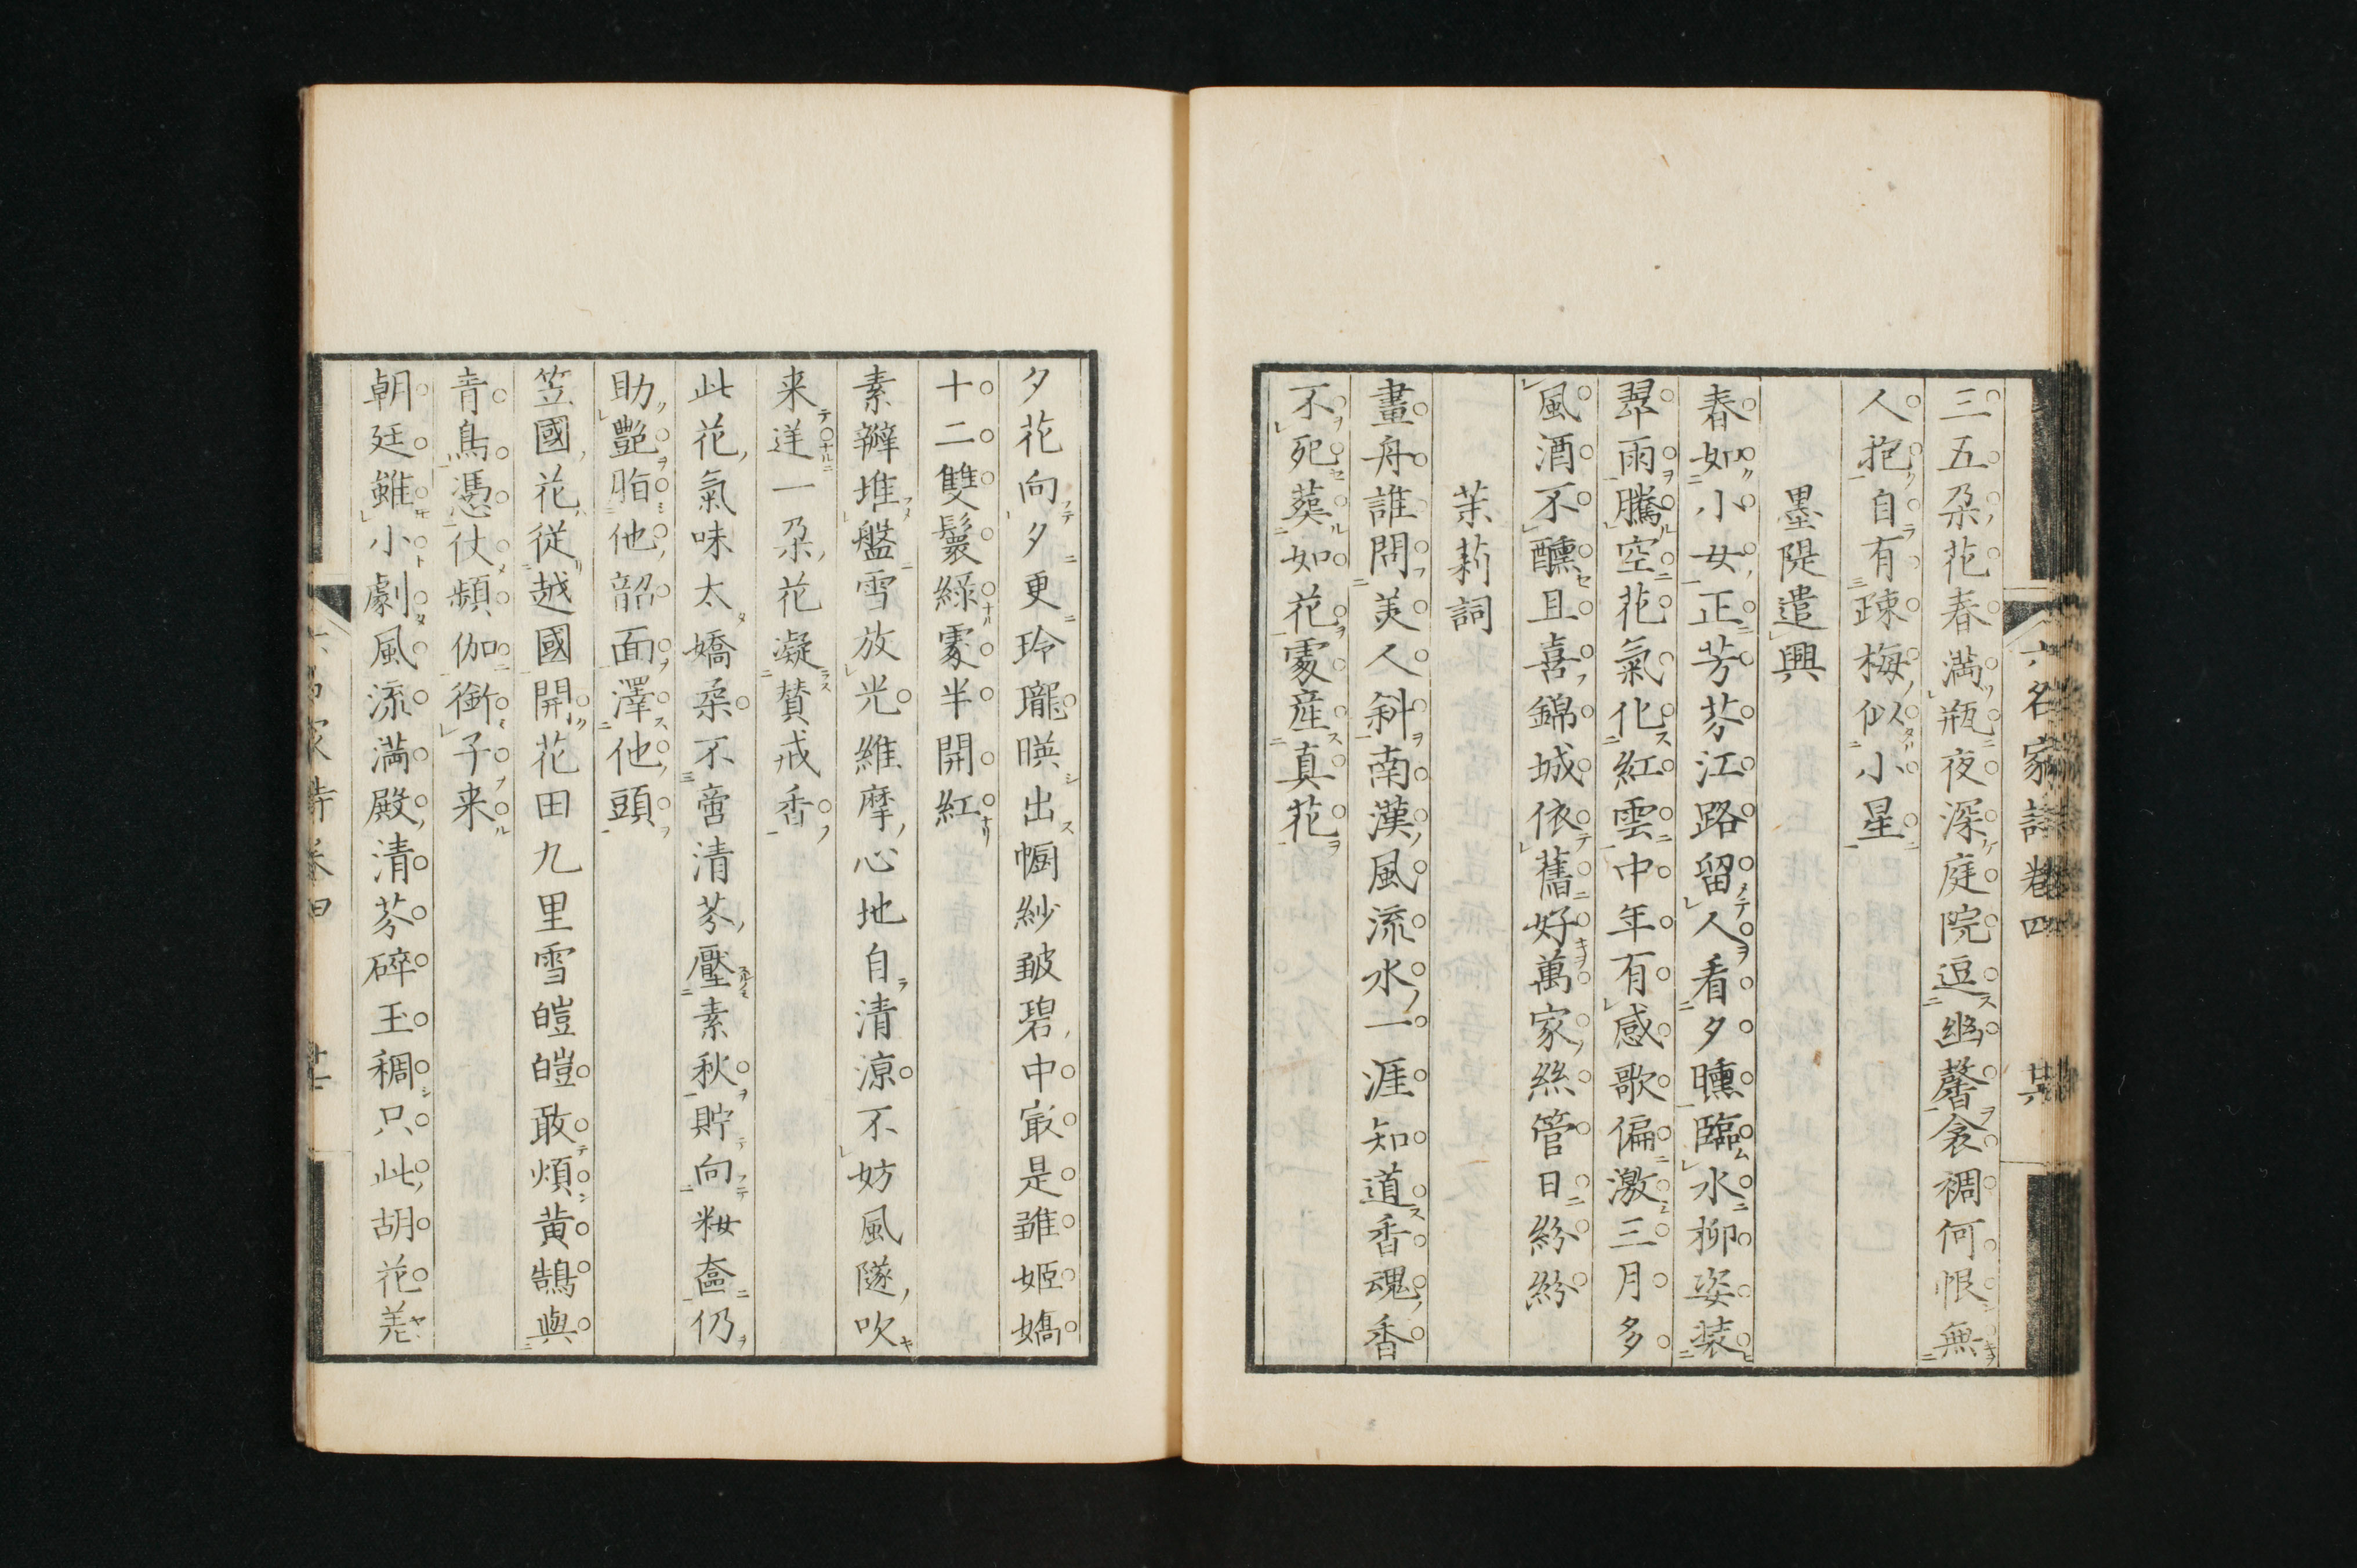 六名家詩 卷四 廿六
三五朶花春滿瓶夜深庭院逗幽馨衾裯何恨無
人抱自有疎梅似小星
墨隄遣興
春如小女正芳芬江路留人看夕曛臨水柳姿装
翠雨騰空花氣化紅雲中年有感歌偏激三月多
風酒不醺且喜錦城依舊好萬家絲管日紛紛
茉莉詞
畫舟誰問美人斜南漢風流水一涯知道香魂香
不死葬如花處産真花
夕花向夕更玲瓏暎出幮紗皺碧中㝡是雖姬嬌
十二雙鬟綠處半開紅
素瓣堆盤雪放光維摩心地自清凉不妨風隧吹
来送一朶花凝賛戒香
此花氣味太嬌柔不啻清芬壓素秋貯向粧奩仍
助艷脂他韶面澤他頭
笠國花從越國開花田九里雪皚皚敢煩黄鵠與
青鳥憑仗頻伽銜子来
朝廷雖小劇風流滿殿清芬碎玉稠只此胡花羌